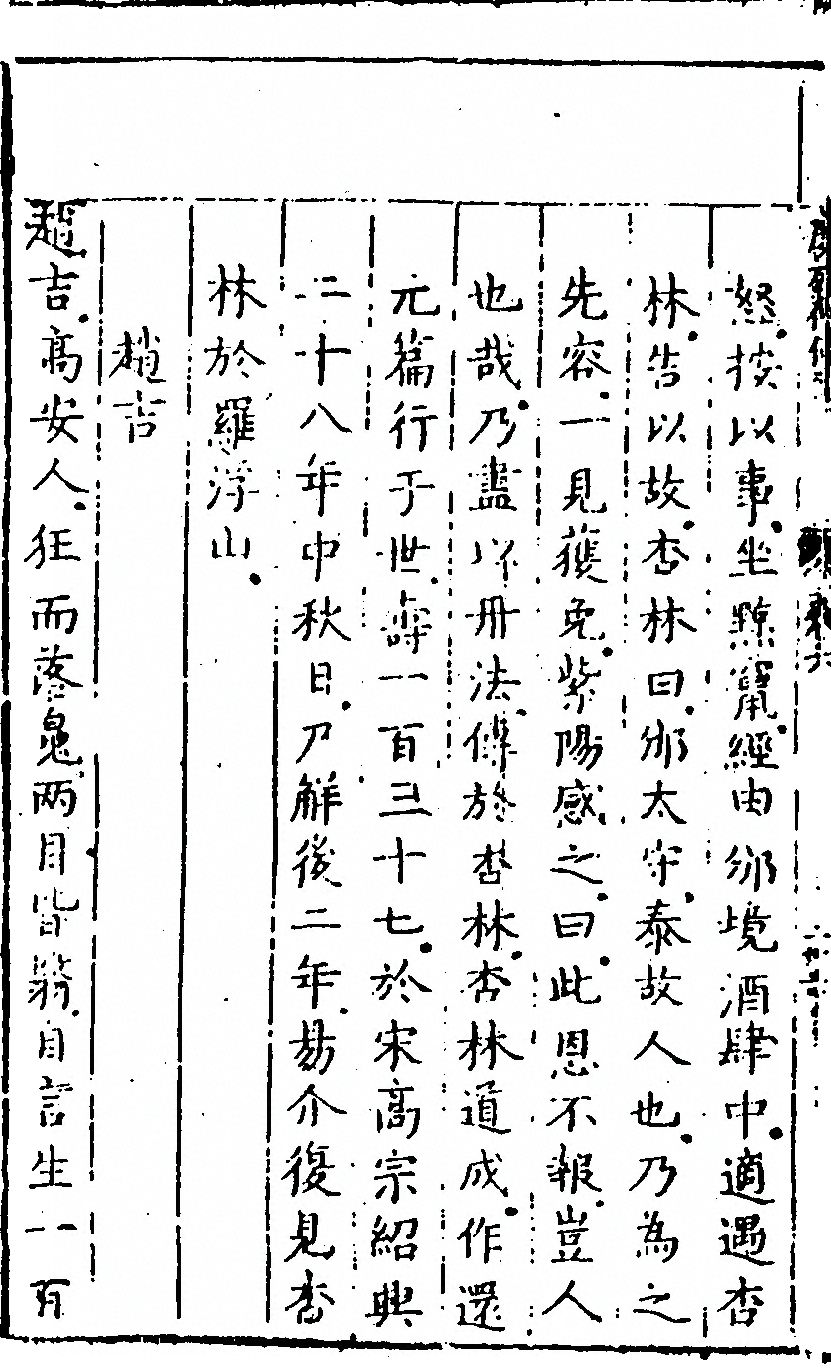 怒按以事坐黥竄經由邠境酒肆中適遇杏
林告以故杏林曰邠太守泰故人也乃為之
先容一見獲免紫陽感之曰此恩不報豈人
也哉乃盡以丹法傳於杏林杏林道成作還
元篇行于世壽一百三十七於宋高宗紹興
二十八年中秋日尸解後二年易介復見杏
林於羅浮山
趙吉
趙吉高安人狂而落魄两目皆翳自言生一百